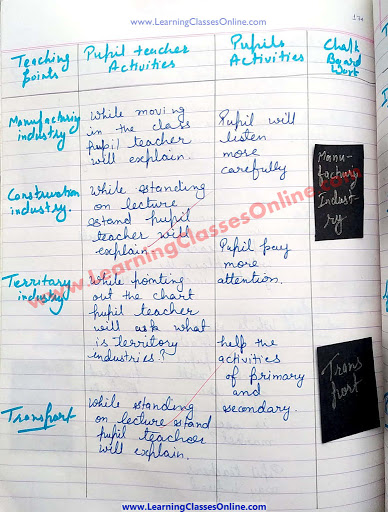 www.LearningClassesOnline.com
Teaching
Points
Pupil teacher
Activities
Pupils
Activities
Chalk
Board
Work
Manufacturing
industry
While moving
in the class
pupil teacher
will explain.
Pupil will
listen
more
carefully
Manu-
factury
Indust
ry
Construction
industry.
While standing
on lecture
stand pupil
teacher will
explain.
Pupil pay
more
attention.
Territary
industry
While pointing
out the chart
pupil teacher
will ask what
is territory
industries?
help the
activities
of primary
and
secondary.
Trans
port
Transport
While standing
on lecture stand
pupil teacher
will explain.
www.LearningClassesOnline.com
www.LearningClassesOnline.com